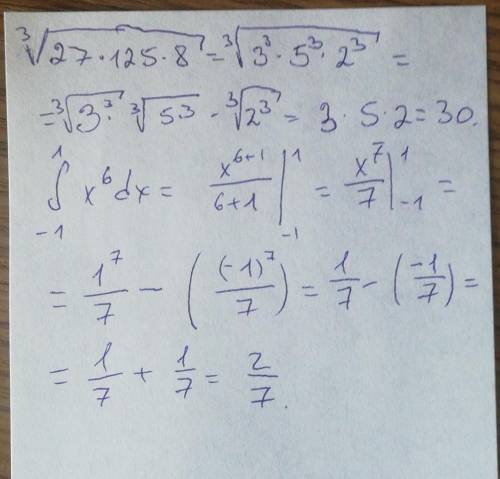 ∛(27·125·8) = ∛(3³·5³·2³) =
= ∛(3·³) · ∛(5³) - ∛(2³) = 3·5·2 = 30.
∫₋₁¹ x⁶dx = x⁶⁺¹/(6+1) |₋₁¹ = x⁷/7 |₋₁¹ =
= 1⁷/7 − ((-1)⁷/7) = 1/7 − (-1/7) =
= 1/7 + 1/7 = 2/7.